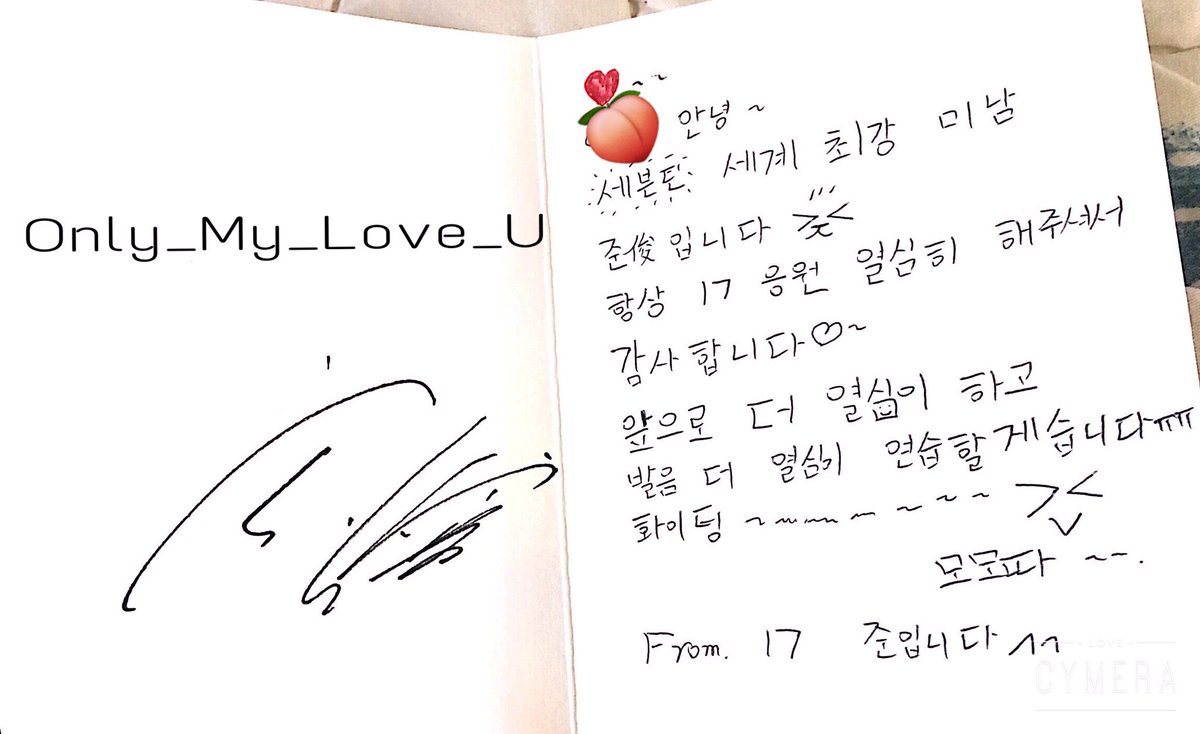 Only_My_Love_U
안녕~
세븐틴 세계 최강 미남
준俊입니다 ><
항상 17 응원 열심히 해주셔서
감사합니다♡~
앞으로 더 열심이 하고
발음 더 열심히 연습할게습니다ㅠㅠ
화이팅 ~~~~~~~ ><
모모따 ~~.
From. 17 준입니다 ^^
LOVE
CYMERA